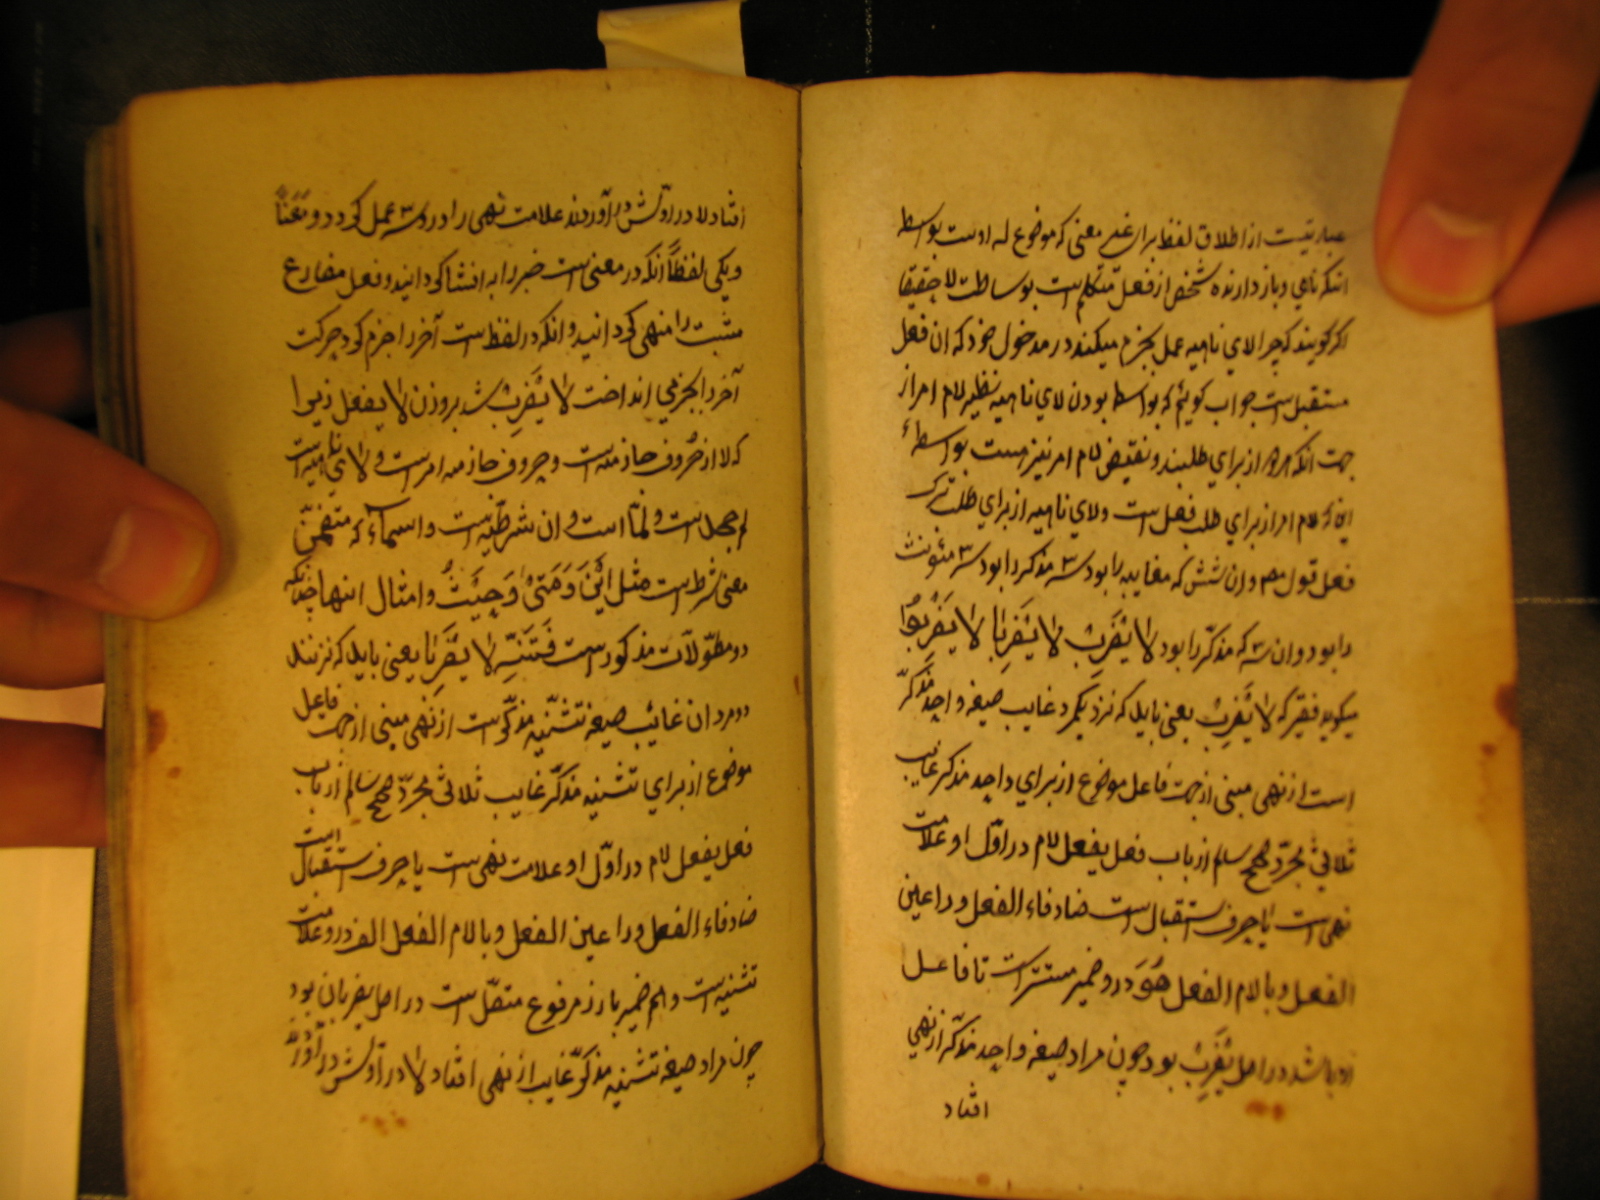 عبارتیست از اطلاق لفظ برای غیر معنی که موضوع له اوست بواسطهٔ
انکه ناهی و بازدارنده شخص از فعل متکلم است بوساطت لا حقیقا
اکر کویند که چرا لای ناهیه عمل بجزم میکند در مدخول خود که ان فعل
مستقبل است جواب کوئیم که بواسطه بودن لای ناهیه نظیر لام امر از
جهت انکه هر دو از برای طلبند و نقیض لام امر نیز هست بواسطهٔ
این که لام امر از برای طلب فعل است و لای ناهیه از برای طلب ترک
فعل قول مص و ان شش که مغایبه را بود سه ۳ مذکر را بود سه ۳ مئونث
را بود و ان سه ۳ که مذکّر را بود لا یَقْرِبْ لا یَقْرِبٰا لا یَقْرِبُوا
میکوید فقیر که لا یَقْرِبْ یعنی باید که نزد یکمرد غایب صیغه واحد مذکّر
است از نهی مبنی از جهت فاعل موضوع از برای واحد مذکر غایب
ثلاثی مجرّد صحیح سالم از باب فعل یفعل لام در اوّل او علامت
نهی است یا حرف استقبال است ضاد فاء الفعل و را عین
الفعل و با لام الفعل هُوَ درو ضمیر مستتر است تا فاعل
او باشد در اصل یَقْرِبُ بود چون مراد صیغه واحد مذکّر از نهی
افتاد
افتاد لا در اوّلش در آوردند علامت نهی را درو سه ۳ عمل کرد دو معناً
و یکی لفظاً انکه در معنی است خبر را به انشا کردانید و فعل مضارع
مثبت را منهی کردانید و انکه در لفظ است آخر را جزم کرد حرکت
آخر را بجزمی انداخت لا یَقْرِبْ شد بروزن لا یفعل زیرا
که لا از حروف جازمه است و حروف جازمه امر است و لای ناهیه است
لم جحد است و لمّا است و ان شرطیّه است و اسمآء که متضمّن
معنی شرط است مثل اَیْنَ وَ مَتیٰ وَ حِیَثُ و امثال اینها چنانکه
در مطوّلات مذکور است فَتَنَبِّه لا یَقْرِبٰا یعنی باید که نزنند
دو مردان غائب صیغه تثنیّه مذکّر است از نهی مبنی از جهت فاعل
موضوع از برای تثنیه مذکّر غایب ثلاثی مجرّد صحیح سالم از باب
فعل یفعل لام در اوّل او علامت نهی است یا حرف استقبال است
ضاد فاء الفعل و را عین الفعل و با لام الفعل الف درو علامت
تثنیه است و هم ضمیر بارز مرفوع متصّل است در اصل یقربان بود
چون مراد صیغه تثنیه مذکّر غایب از نهی افتاد لا در اوّلش در آوردند